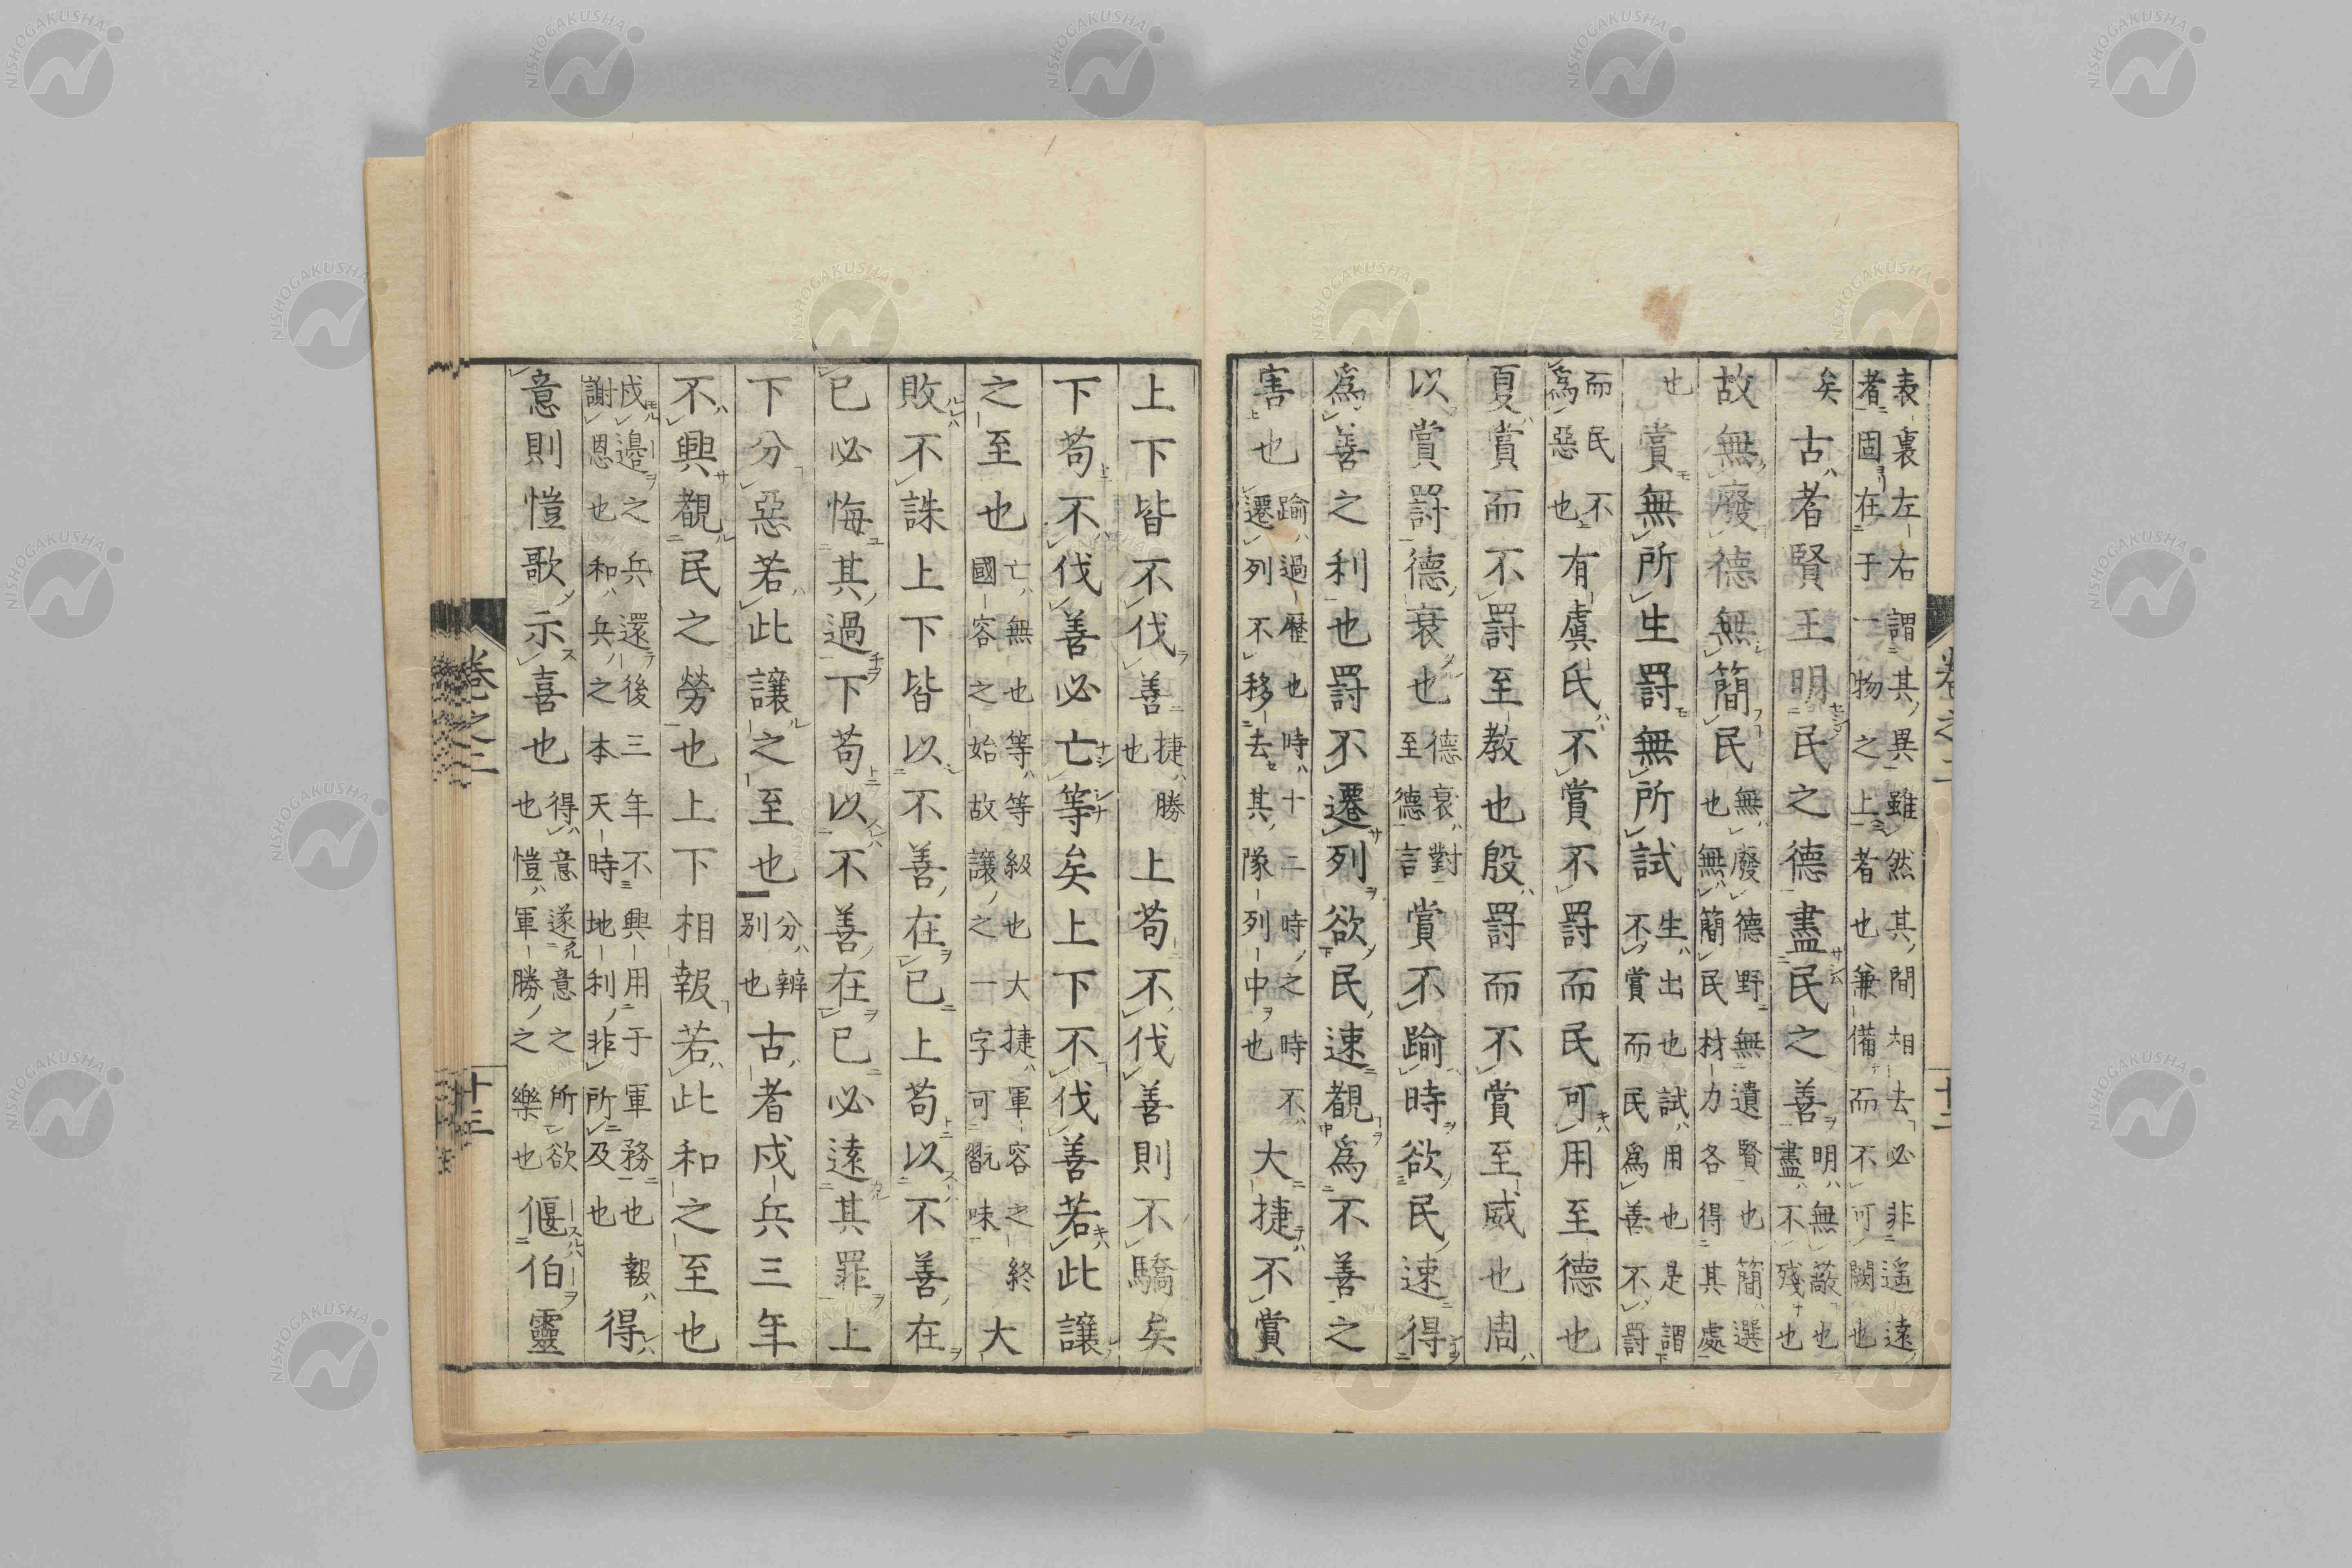 表裏左右謂其異雖然其間相去必非遥遠
者固在于一物之上者也兼備而不可闕也
矣古者賢王明民之德盡民之善明無蔽也盡不殘也
故無廢德無簡民無廢德野無遺賢也簡選也無簡民材力各得其處
也賞無所生罰無所試生出也試用也是謂不賞而民爲善不罰
而民不爲惡也有虞氏不賞不罰而民可用至德也
夏賞而不罰至教也殷罰而不賞至威也周
以賞罰德衰也德衰對至德言賞不踰時欲民速得
爲善之利也罰不遷列欲民速覩爲不善之
害也踰過歷也時十二時之時不遷列不移去其隊列中也大捷不賞
上下皆不伐善捷勝也上苟不伐善則不驕矣
下苟不伐善必亡等矣上下不伐善若此讓
之至也亡無也等等級也大捷軍容之終國容之始故讓之一字可翫味大
敗不誅上下皆以不善在已上苟以不善在
已必悔其過下苟以不善在已必遠其罪上
下分惡若此讓之至也分辨別也古者戍兵三年
不興覩民之勞也上下相報若此和之至也
戍邊之兵還後三年不興用于軍務也報謝恩也和兵之本天時地利非所及也得
意則愷歌示喜也得意遂意之所欲也愷軍勝之樂也偃伯靈
卷之三 十三